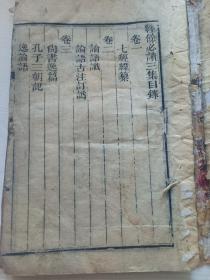 經餘必讀三集目錄
卷一
七經緯纂
卷二
論語讖
論語古注計譌
卷三
尚書逸篇
孔子三朝記
逸論語